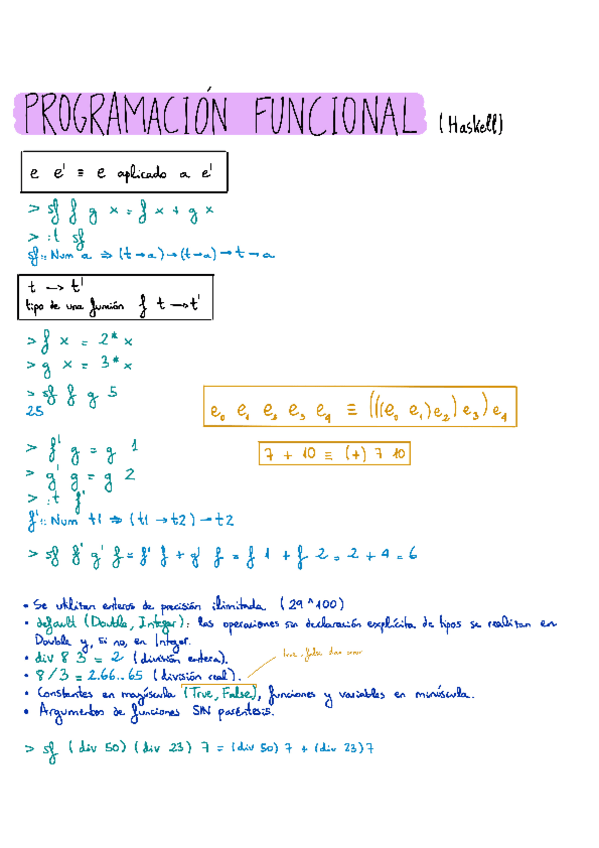 PROGRAMACIÓN FUNCIONAL (Haskell)
e e' ≡ e aplicado a e'
> sf f g x = f x + g x
> :t sf
sf :: Num a ⇒ (t → a) → (t → a) → t → a
t → t'
tipo de una función f t → t'
> f x = 2* x
> g x = 3* x
> sf f g 5
25
e₀ e₁ e₂ e₃ e₄ ≡ (((e₀ e₁) e₂) e₃) e₄
> f' g = g 1
> g' g = g 2
7 + 10 ≡ (+) 7 10
> :t f'
f' :: Num t1 ⇒ (t1 → t2) → t2
> sf f' g' f = f' f + g' f = f 1 + f 2 = 2 + 4 = 6
• Se utilizan enteros de precisión ilimitada (29^100)
• default (Double, Integer): las operaciones sin declaración explícita de tipos se realizan en
Double y, si no, en Integer.
• div 8 3 = 2 (división entera).
true, false dan error
• 8/3 = 2.66..65 (división real).
• Constantes en mayúscula (True, False), funciones y variables en minúscula.
• Argumentos de funciones SIN paréntesis.
> sf (div 50) (div 23) 7 = (div 50) 7 + (div 23) 7